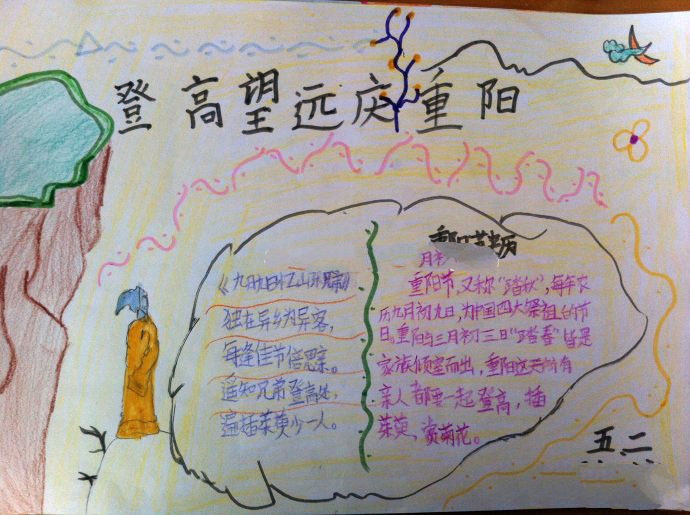 登高望远庆重阳
《九月九日忆山东兄弟》
独在异乡为异客，
每逢佳节倍思亲。
遥知兄弟登高处，
遍插茱萸少一人。
重阳节，又称"踏秋"，每年农
历九月初九日，为中国四大祭祖的节
日。重阳与三月初三日"踏春"皆是
家族倾室而出，重阳这天所有
亲人都要一起登高，插
茱萸、赏菊花。
五.二